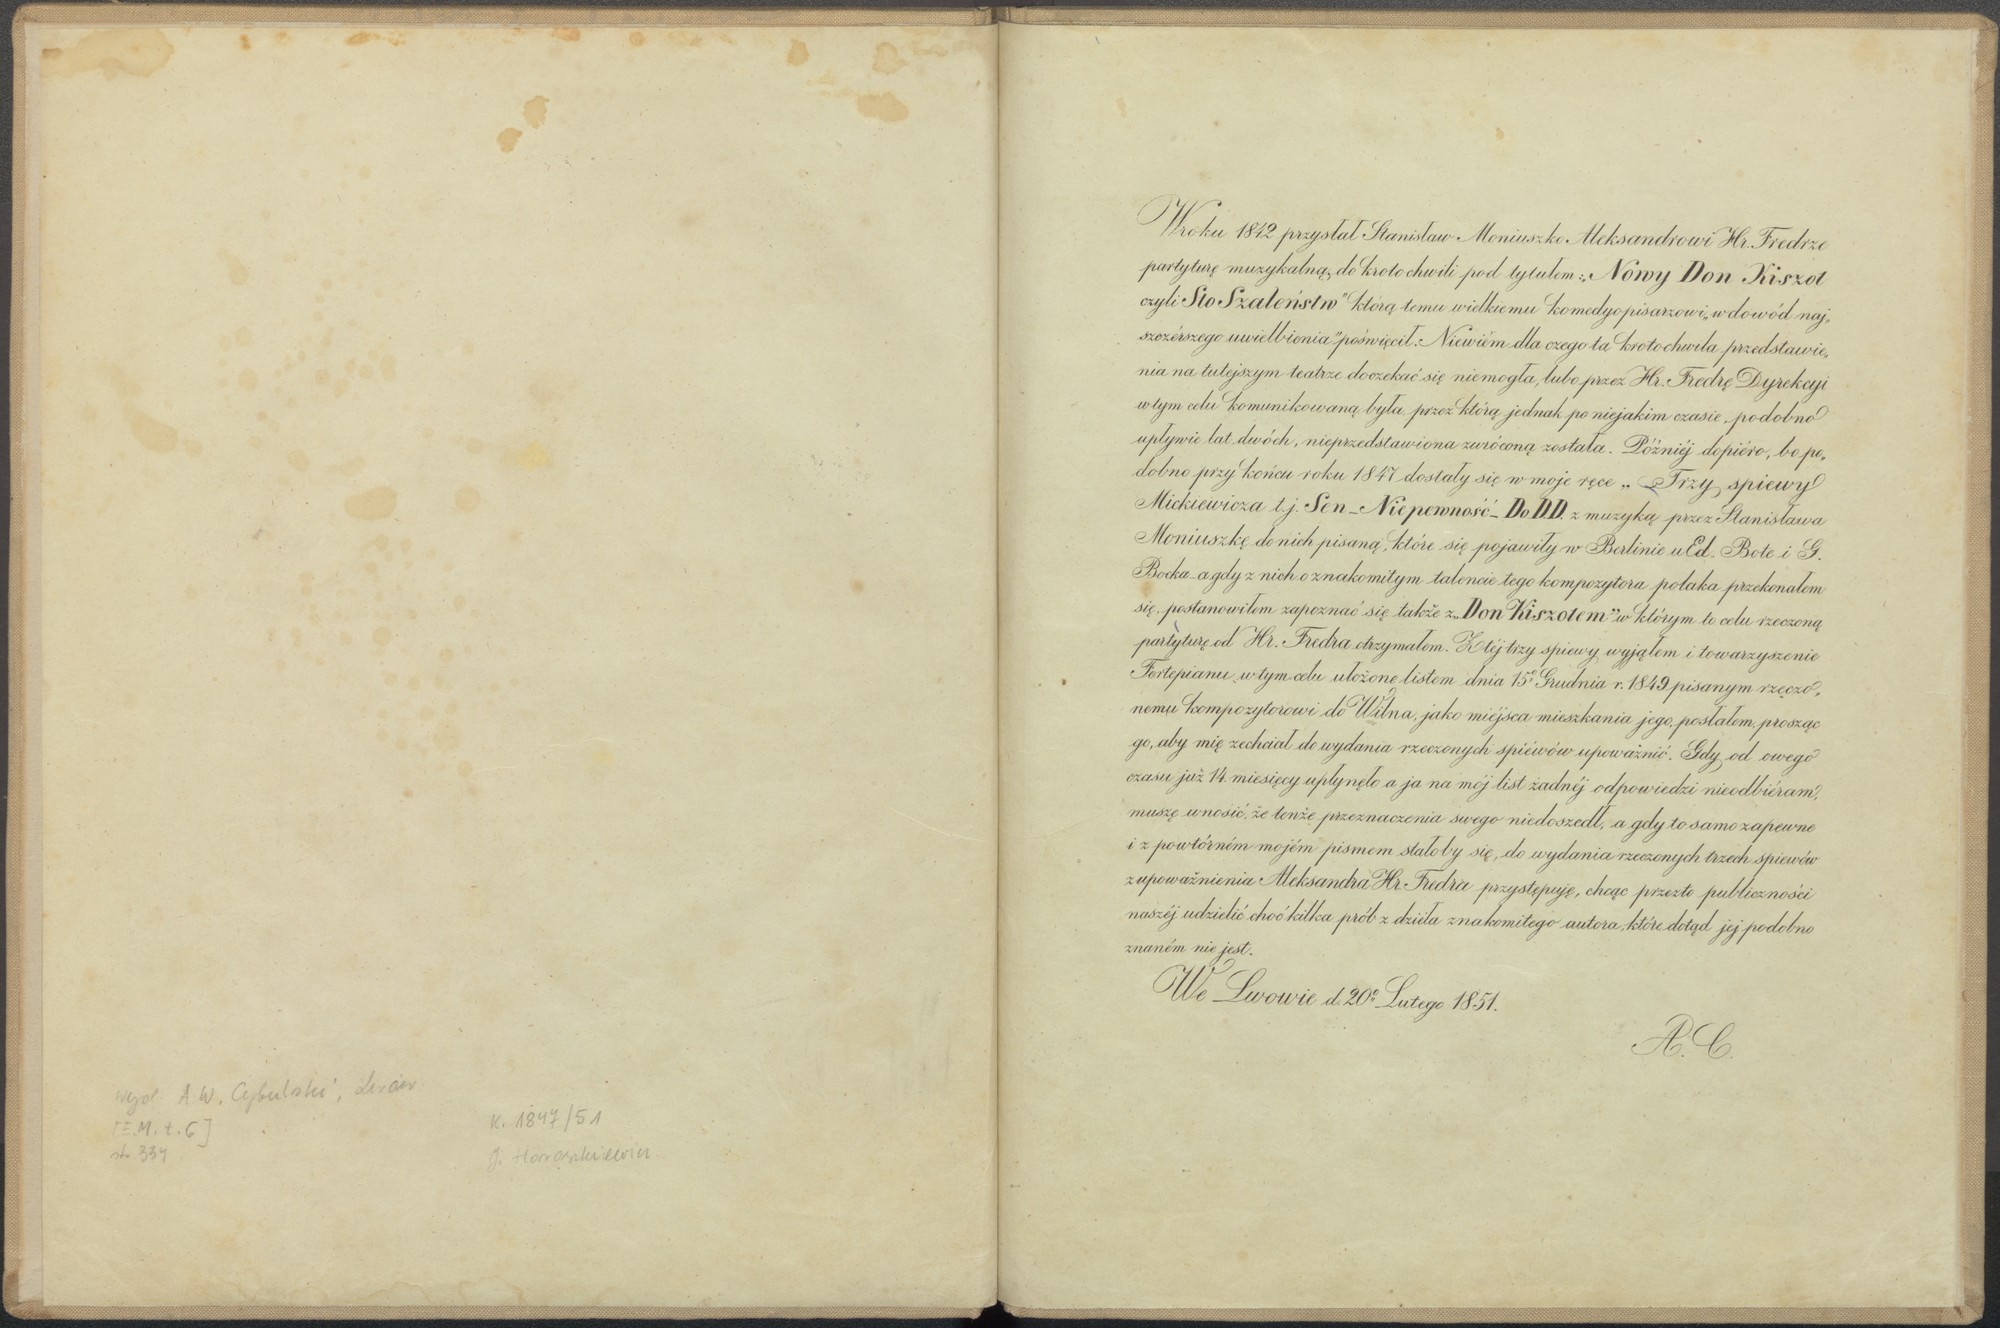 wyd. A. W. Cybulski,
[E.M. t. 6]
str 334
K. 1847/51
J.
W roku 1842 przysłał Stanisław Moniuszko Aleksandrowi Hr. Fredrze
partyturę muzykalną do krotochwili pod tytułem: „Nowy Don Kiszot
czyli Sto Szaleństw" którą temu wielkiemu komedyopisarzowi „w dowód naj„
szczérszego uwielbienia" poświęcił. Niewiém dla czego ta krotochwila przedstawie„
nia na tutejszym teatrze doczekać się niemogła, lubo przez Hr. Fredrę Dyrekcyi
w tym celu komunikowaną była, przez którą jednak po niejakim czasie, podobno
upływie lat dwóch, nieprzedstawiona zwróconą została. Późniéj dopiéro, bo po„
dobno przy końcu roku 1847 dostały się w moje ręce „Trzy spiewy
Mickiewicza t. j. Sen _ Niepewność _ Do D.D. z muzyką przez Stanisława
Moniuszkę do nich pisaną, które się pojawiły w Berlinie u Ed. Bote i G.
Bocka _ a gdy z nich o znakomitym talencie tego kompozytora polaka przekonałem
się, postanowiłem zapoznać się także z „Don Kiszotem" w którym to celu rzeczoną
partyturę od Hr. Fredra otrzymałem. Z téj trzy spiewy wyjąłem i towarzyszenie
Fortepianu w tym celu ułożone listem dnia 15º Grudnia r. 1849 pisanym rzeczo„
nemu kompozytorowi do Wilna, jako miéjsca mieszkania jego, posłałem, prosząc
go, aby mię zechciał do wydania rzeczonych spiéwów upoważnić. Gdy od owego
czasu już 14 miesięcy upłynęło a ja na mój list żadnéj odpowiedzi nieodbiéram,
muszę wnosić, że tenże przeznaczenia swego niedoszedł, a gdy to samo zapewne
i z powtórném mojém pismem stałoby się, do wydania rzeczonych trzech spiewów
z upoważnienia Aleksandra Hr. Fredra przystępuję, chcąc przezto publiczności
naszéj udzielić choć kilka prób z dzieła znakomitego autora, które dotąd jej podobno
znaném nie jest.
We Lwowie d. 20º Lutego 1851.
A. C.